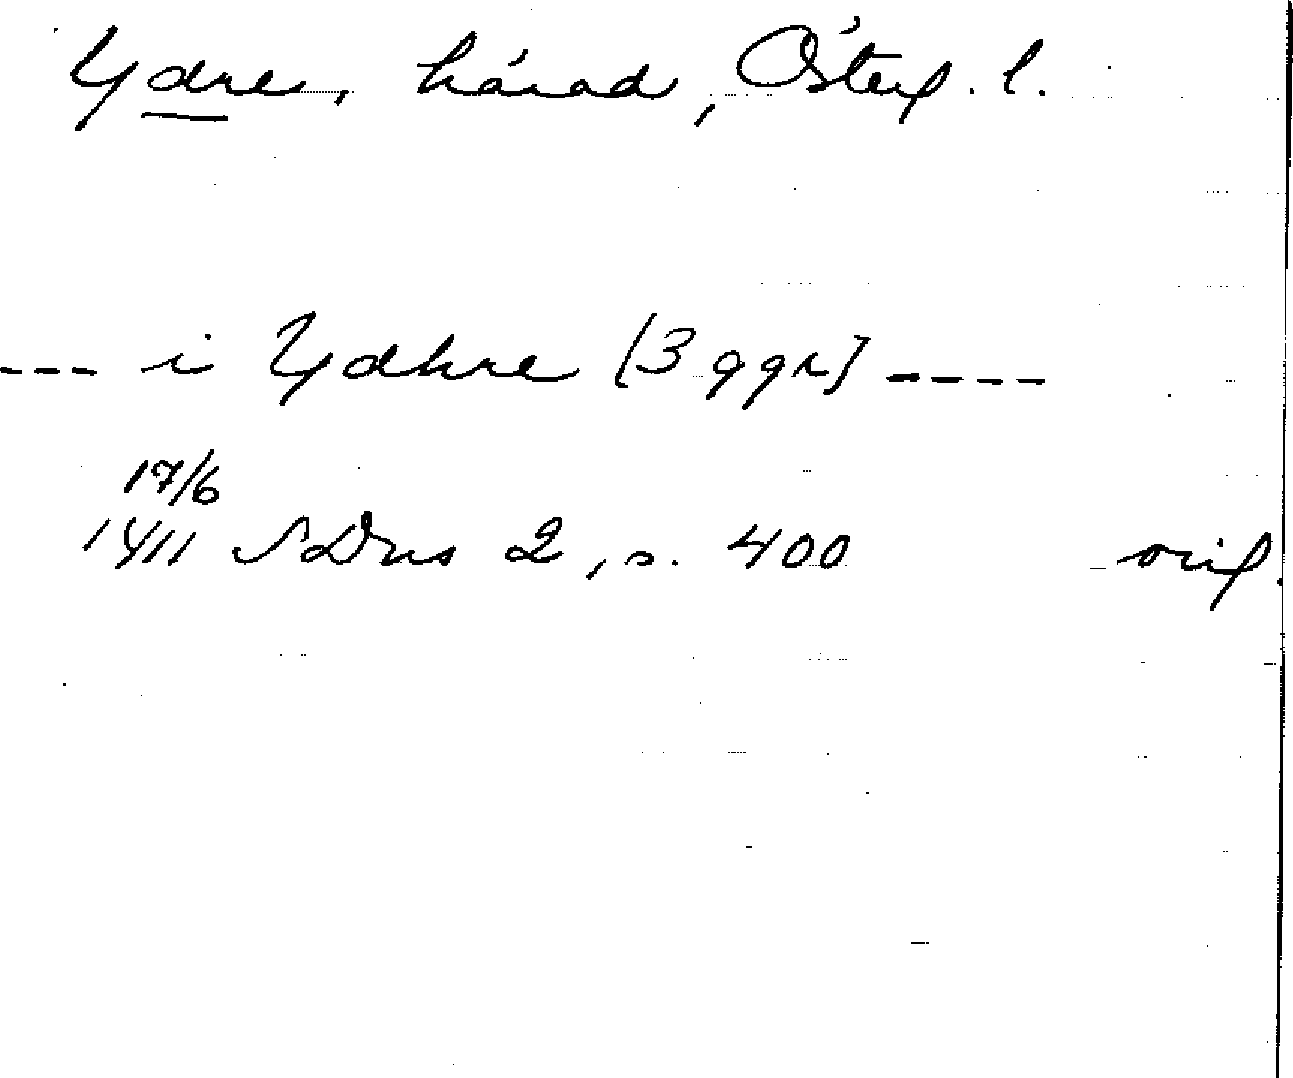 Ydre, härad, Österg. l.
--- i Ydhre [3 ggr] ----
17/6
1411 SDns 2, s. 400 orig.